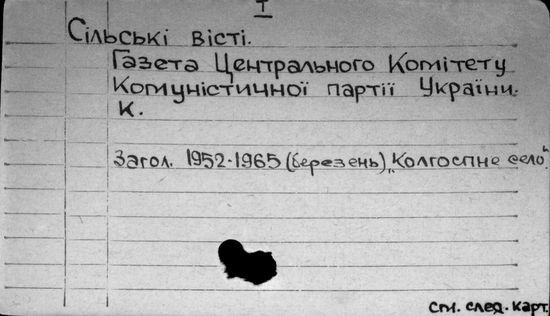 I
Сільські вісті.
Газета Центрального Комітету
Комуністичної партії України.
К.
Загол. 1952-1965 (березень) „Колгоспне село"
См. след. карт.